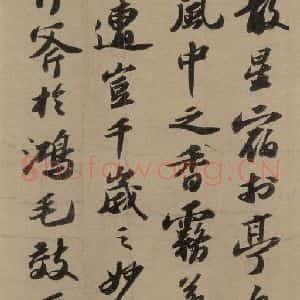 散星宿於亭
風中之香霧
遭豈千歲之妙
斧於鴻毛效
Shufawang.CN